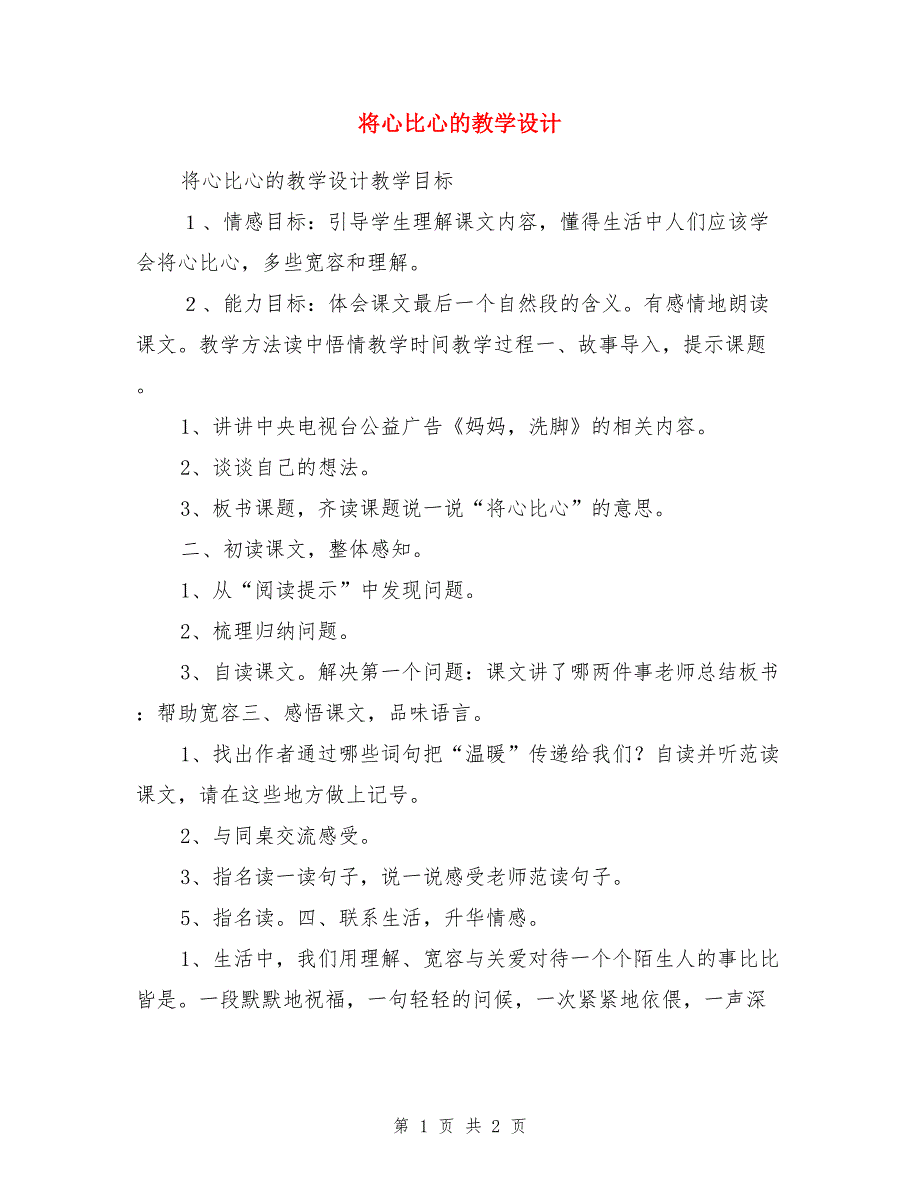 将心比心的教学设计
将心比心的教学设计教学目标
１、情感目标：引导学生理解课文内容，懂得生活中人们应该学
会将心比心，多些宽容和理解。
２、能力目标：体会课文最后一个自然段的含义。有感情地朗读
课文。教学方法读中悟情教学时间教学过程一、故事导入，提示课题
。
1、讲讲中央电视台公益广告《妈妈，洗脚》的相关内容。
2、谈谈自己的想法。
3、板书课题，齐读课题说一说“将心比心”的意思。
二、初读课文，整体感知。
1、从“阅读提示”中发现问题。
2、梳理归纳问题。
3、自读课文。解决第一个问题：课文讲了哪两件事老师总结板书
：帮助宽容三、感悟课文，品味语言。
1、找出作者通过哪些词句把“温暖”传递给我们？自读并听范读
课文，请在这些地方做上记号。
2、与同桌交流感受。
3、指名读一读句子，说一说感受老师范读句子。
5、指名读。四、联系生活，升华情感。
1、生活中，我们用理解、宽容与关爱对待一个个陌生人的事比比
皆是。一段默默地祝福，一句轻轻的问候，一次紧紧地依偎，一声深
第 1 页 共 2 页